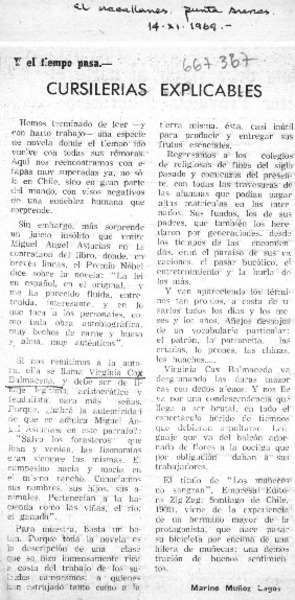 El Magallanes, Punta Arenas,
14-XI-1969.-
667367
Y el tiempo pasa.—
CURSILERIAS EXPLICABLES
Hemos terminado de leer —y
con harto trabajo— una especie
de novela donde el tiempo ido
vuelve con todas sus rémoras.
Aquí nos reencontramos con e-
tapas muy superadas ya, no só
lo en Chile, sino en gran parte
del mundo, con visos negativos
de una endeblez humana que
sorprende.
Sin embargo, más sorprende
un juicio insólito que emite
Miguel Angel Asturias en la
contratapa del libro, donde, en
breves líneas, el Premio Nóbel
dice sobre la novela: "La leí
en español, en el original, y
me ha parecido fluida, entre-
tenida, interesante, y en lo
que toca a los personajes, co-
mo toda obra autobiográfica,
muy hechos de carne y hueso
y alma, muy auténticos".
Si nos remitimos a la auto-
ra, ella se llama Virginia Cox
Balmaceda, y debe ser de li-
naje aristocrático y
feudalista para más señas.
Porque, ¿habrá la autenticidad
de que se admira Miguel An-
gel Asturias en este párrafo?:
"Salvo los forasteros" que
iban y venían, las fisonomías
eran siempre las mismas. El
campesino nacía y moría en
el mismo rancho. Conocíamos
sus nombres, sus hijos, sus a-
nimales. Pertenecían a la ha-
cienda como las viñas, el río,
el ganado".
Para muestra, basta un bo-
tón. Porque toda la novela es
la descripción de una clase
que se hizo inmensamente rica
a costa del trabajo de los su-
fridos campesinos a quienes
han estrujado tanto como a la
tierra misma, ésta, casi inútil
para producir y entregar sus
frutos esenciales.
Regresamos a los colegios
de religiosas de fines del siglo
pasado y comienzos del presen-
te, con todas las travesuras de
las alumnas que podían pagar
altas matrículas en los inter-
nados. Sus fundos, los de sus
padres, que también los here-
daron por generaciones, desde
los tiempos de las encomien-
das, eran el paraíso de sus va-
caciones, el pasar bucólico, el
entretenimiento y la burla de
los más.
Y van apareciendo los térmi-
nos tan propios, a costa de u-
sarlos todos los días y los me-
ses y los años. Añejos desdejos
de un vocabulario particular:
el patrón, la patroncita, las
criadas, la prones, las chinas,
los huachos....
Y Virginia Cox Balmaceda va
desgranando las caras mazor-
cas con dedos añosos. Y nos lle-
va por una condescendencia que
llega a ser brutal, en todo el
espectáculo hórrido de tiempos
que debieran sepultarse. Len-
guaje que va del balcón ador-
nado de flores a la cocinga que
por obligación "daban a" sus
trabajadores.
El título de "Los muñecos
no sangran", (Empresa Edito-
ra Zig Zag, Santiago de Chile,
1969), viene de la experiencia
de un hermano mayor de la
protagonista, que hace pasar
su bicicleta por encima de una
hilera de muñecas: una demos-
tración de buenos sentimien-
tos.
Marino Muñoz Lagos